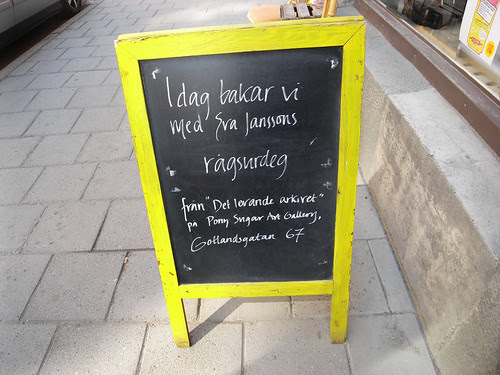 Idag bakar vi
med Eva Janssons
rågsurdeg
från "Det levande arkivet"
på Pony Sugar Art Gallery,
Gotlandsgatan 67